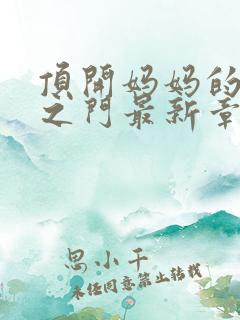 頂開妈妈的
之门最新章
思小千
未经同意禁止转载